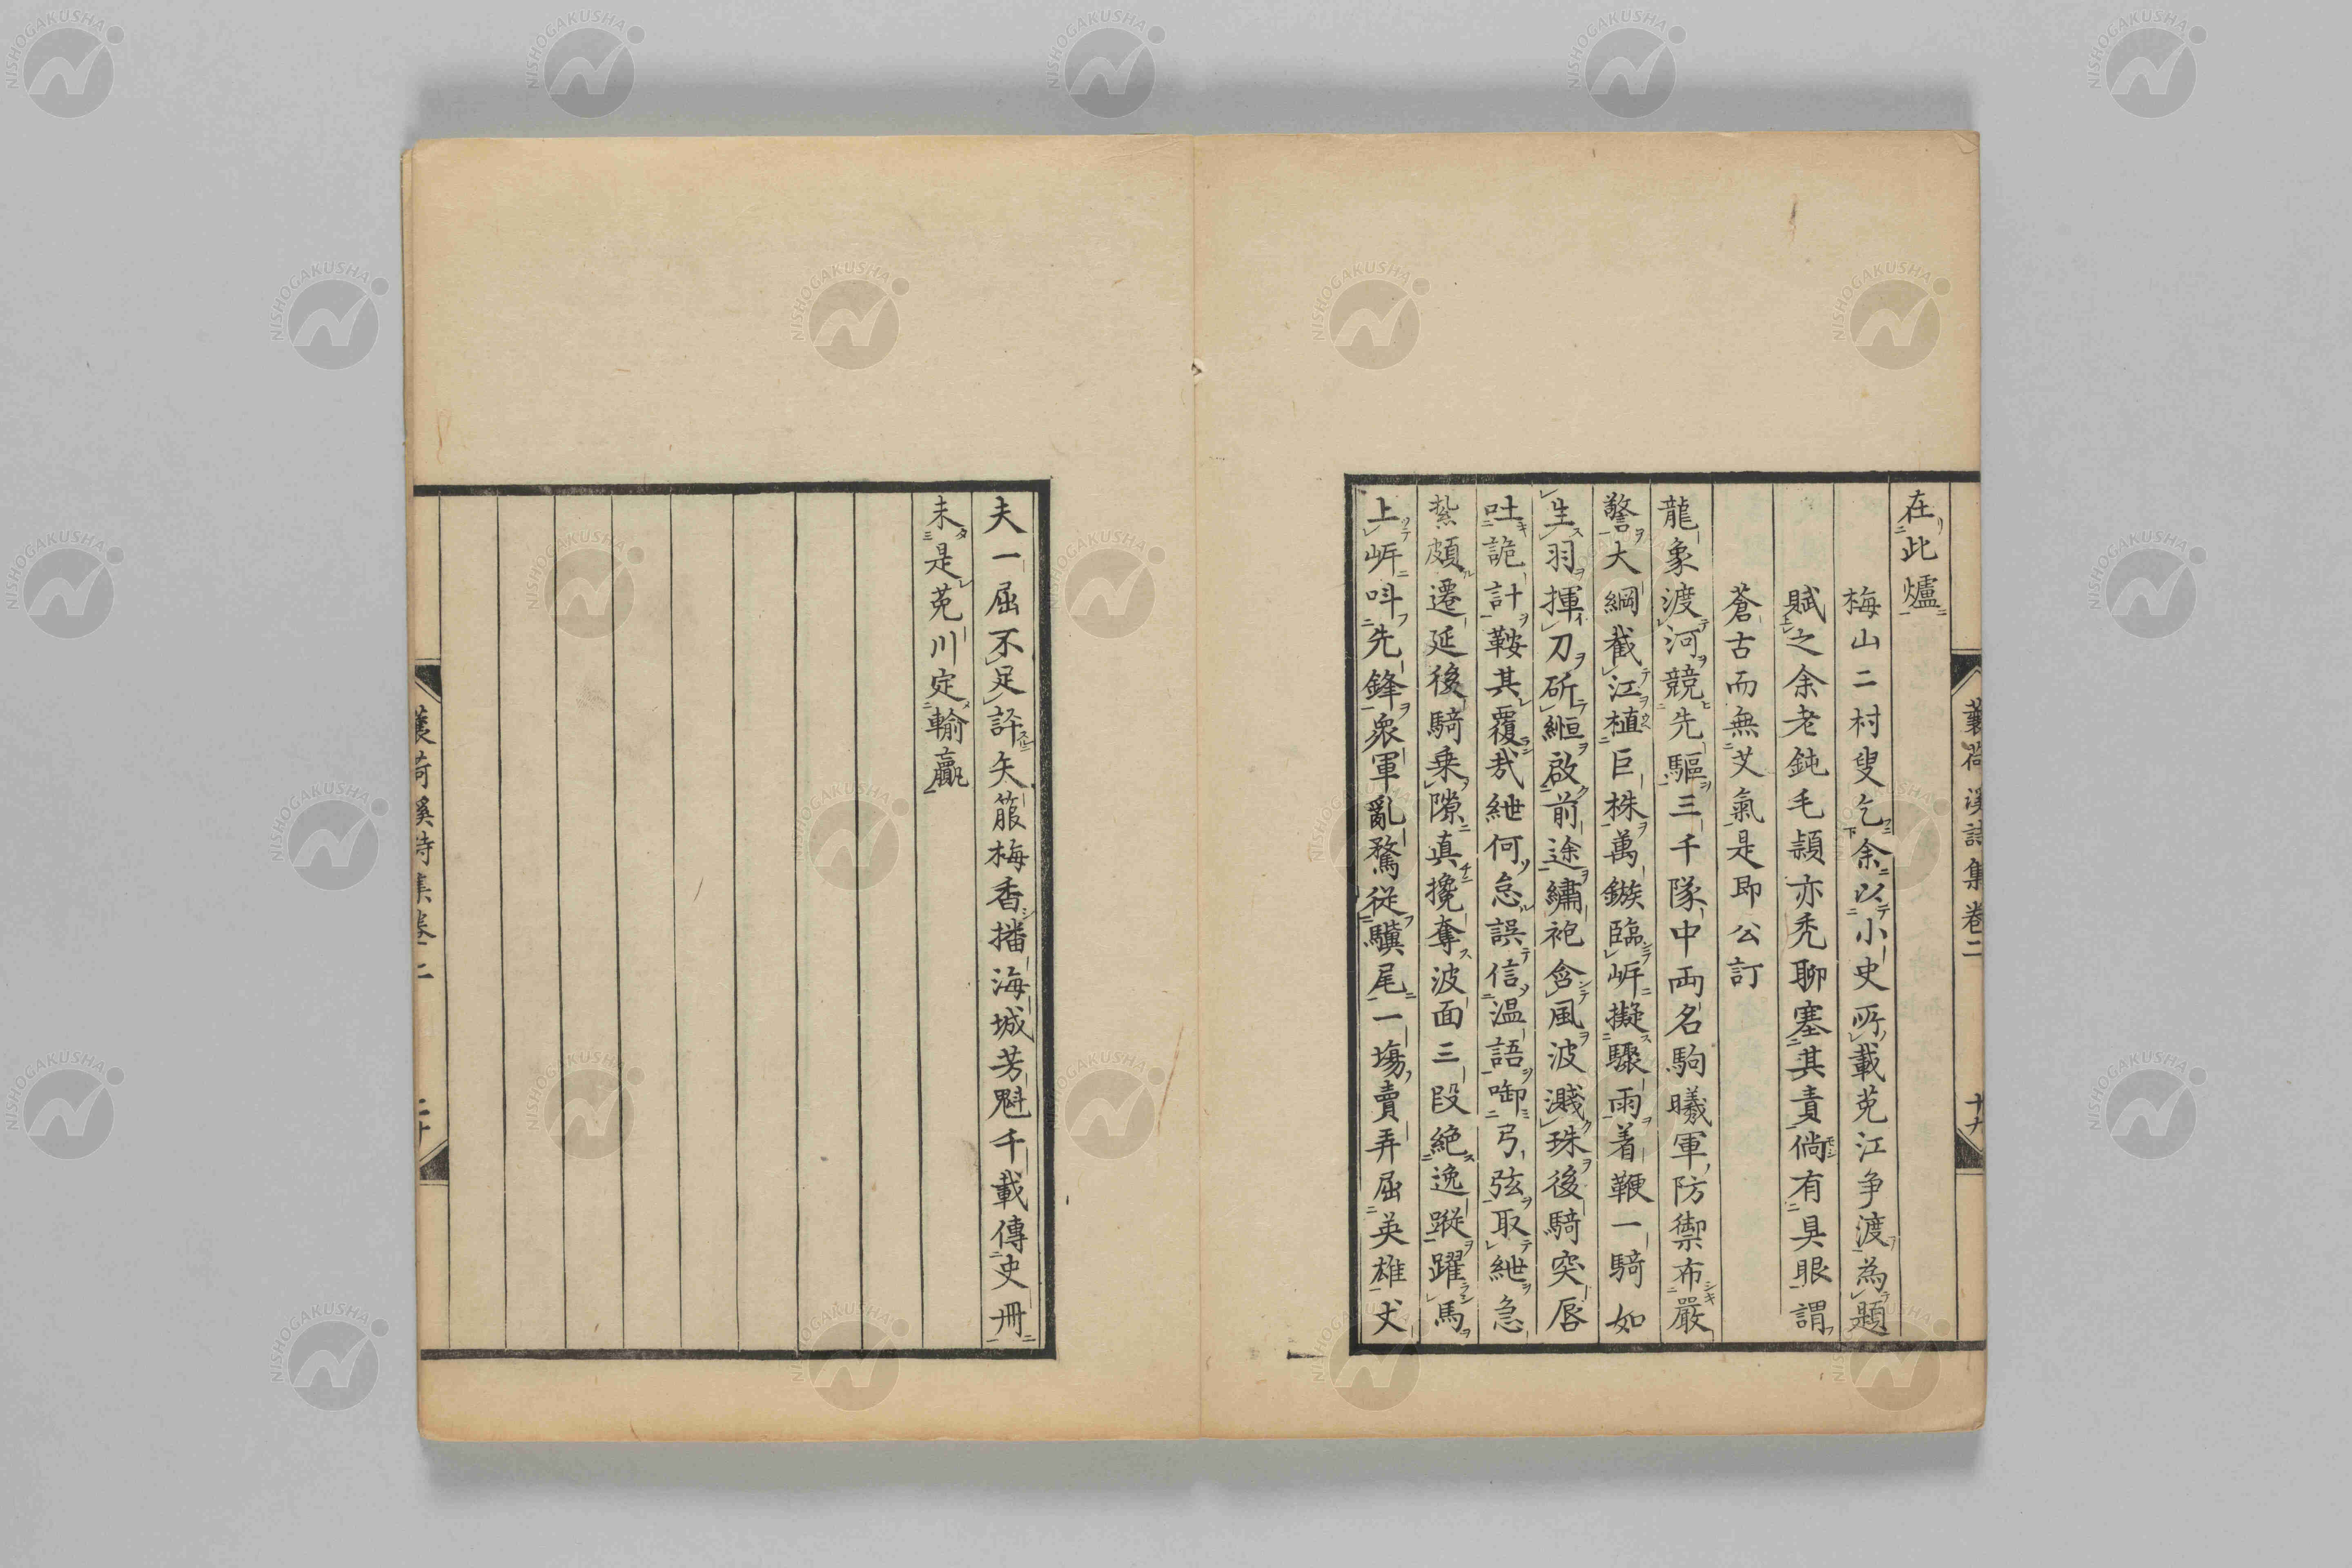 在此爐
梅山二村叟乞余以小史所載菟江争渡為題
賦之余老鈍毛頴亦禿聊塞其責倘有具眼謂
蒼古而無艾氣是即公訂
龍象渡河競先驅三千隊中両名駒曦軍防禦布嚴
警大綱截江植巨株萬鏃臨岸擬驟雨着鞭一騎如
生羽揮刀斫絙啟前途繡袍含風波濺珠後騎突唇
吐詭計鞍其覆哉紲何怠誤信温語啣弓弦取紲急
紮頗遷延後騎乗隙真攙奪波面三段絶逸蹤躍馬
上岸呌先鋒衆軍亂騖從驥尾一塲賣弄屈英雄丈
蘘荷溪詩集卷二 十九
夫一屈不足訴矢箙梅香播海城芳魁千載傳史冊
未是菟川定輸贏
蘘荷溪詩集卷二 二十
NISHOGAKUSHA